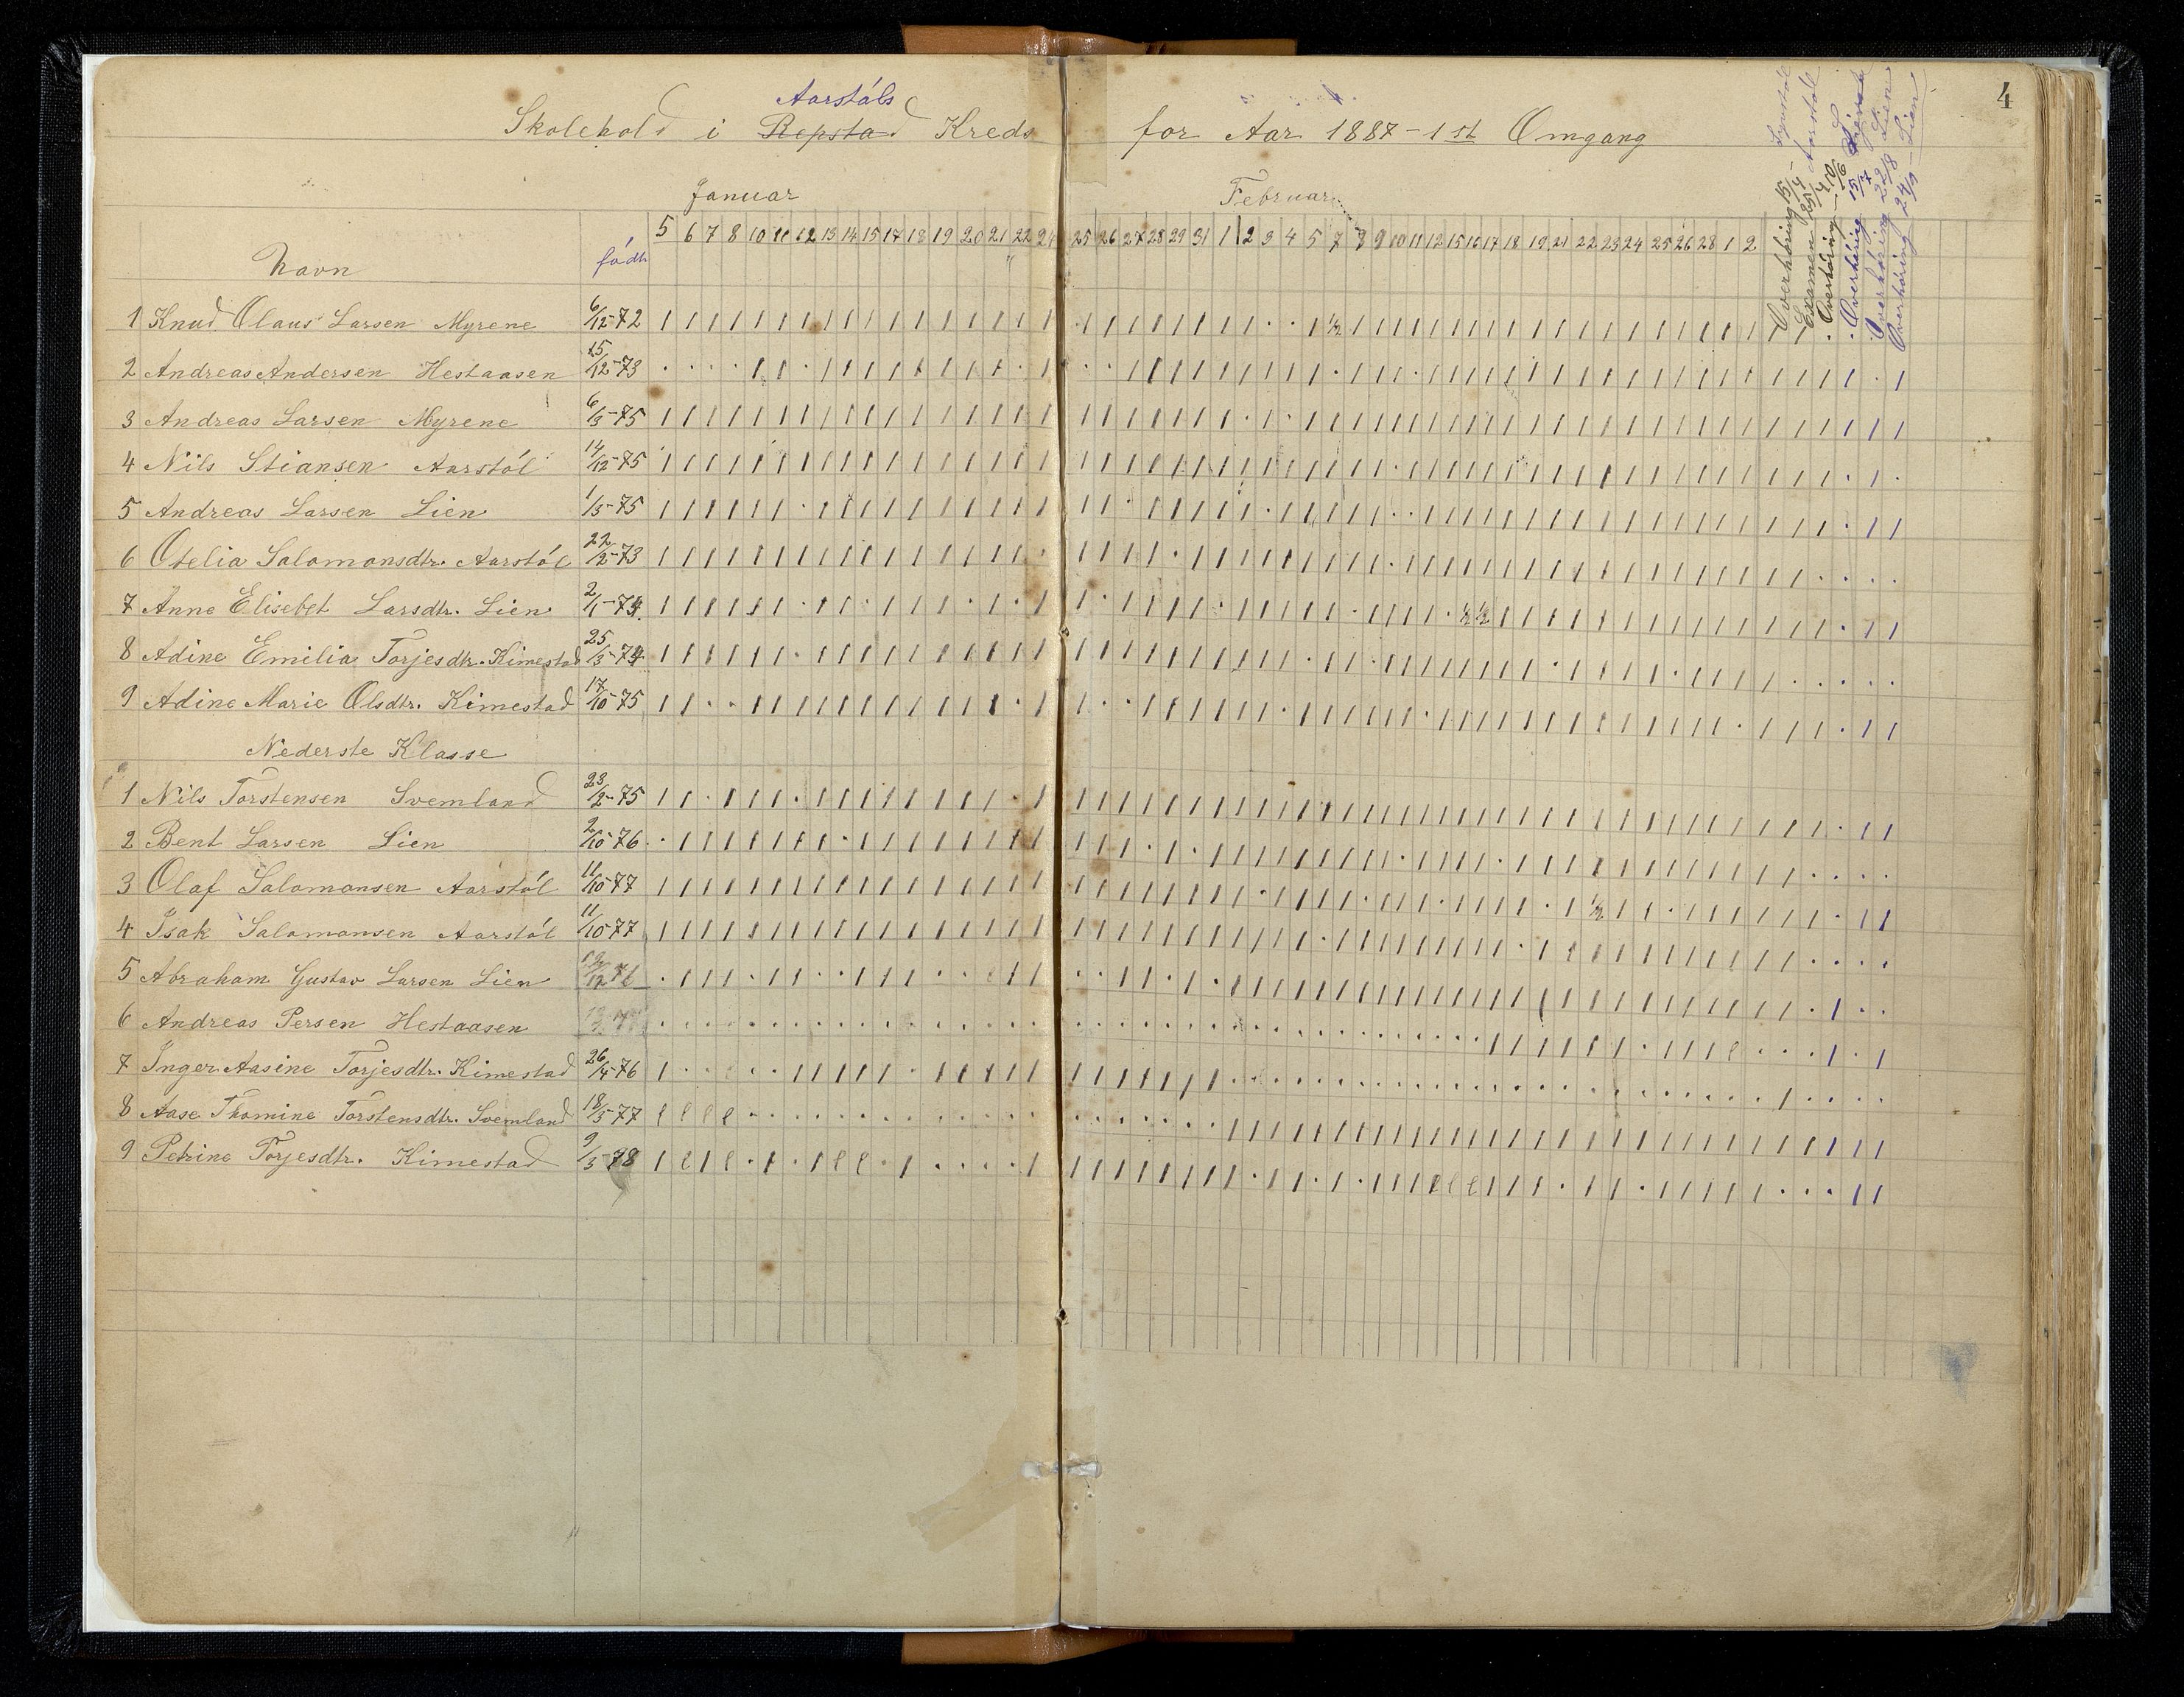 4
Aarstóls
Skolehold i Repstad Kreds for Aar 1887 - 1st Omgang
Januar Februar
Navn fódt 5 6 7 8 10 11 12 13 14 15 17 18 19 20 21 22 24 25 26 27 28 29 31 1 2 3 4 5 7 8 9 10 11 12 15 16 17 18 19 21 22 23 24 25 26 28 1 2
Overhóring 15/4 -
Examen 25/4 Aarstól
Overhóring
Overhóring 15/7
Overhóring 22/8 Lien
Overhóring 24/9 - Lien
1 Knud Olaus Larsen Myrene 6/12-72
2 Andreas Andersen Hestaasen 15/12-73
3 Andreas Larsen Myrene 6/3-75
4 Nils Stiansen Aarstól 14/12-75
5 Andreas Larsen Lien 1/3-75
6 Otelia Salomonsdtr. Aarstól 22/2-73
7 Anne Elisebet Larsdtr. Lien 2/1-74.
8 Adine Emilia Torjesdtr. Kimestad 25/3-74
9 Adine Marie Olsdtr. Kimestad 17/10-75
Nederste Klasse
1 Nils Torstensen Svemland 23/2-75
2 Bent Larsen Lien 2/10-76
3 Olaf Salomonsen Aarstól 11/10-77
4 Isak Salomonsen Aarstól 11/10-77
5 Abraham Gustav Larsen Lien 12/12 76
6 Andreas Persen Hestaasen
7 Inger Aasine Torjesdtr. Kimestad 26/4-76
8 Aase Thomine Torstensdtr. Svemland 18/5-77
9 Petrine Torjesdtr. Kimestad 9/3-78